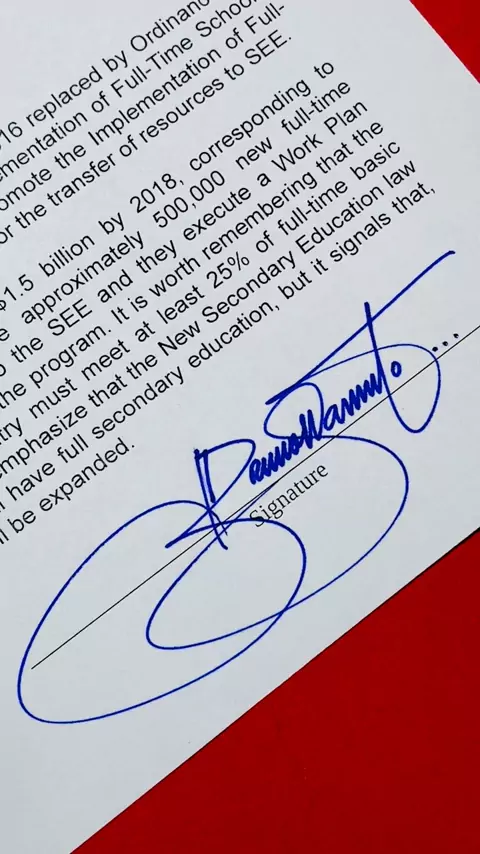 16 replaced by Ordinanc
ementation of Full-Time School
omote the Implementation of Full-
or the transfer of resources to SEE.
$1.5 billion by 2018, corresponding to
e approximately 500,000 new full-time
o the SEE and they execute a Work Plan
the program. It is worth remembering that the
ntry must meet at least 25% of full-time basic
emphasize that the New Secondary Education law
l have full secondary education, but it signals that,
ll be expanded.
Signature